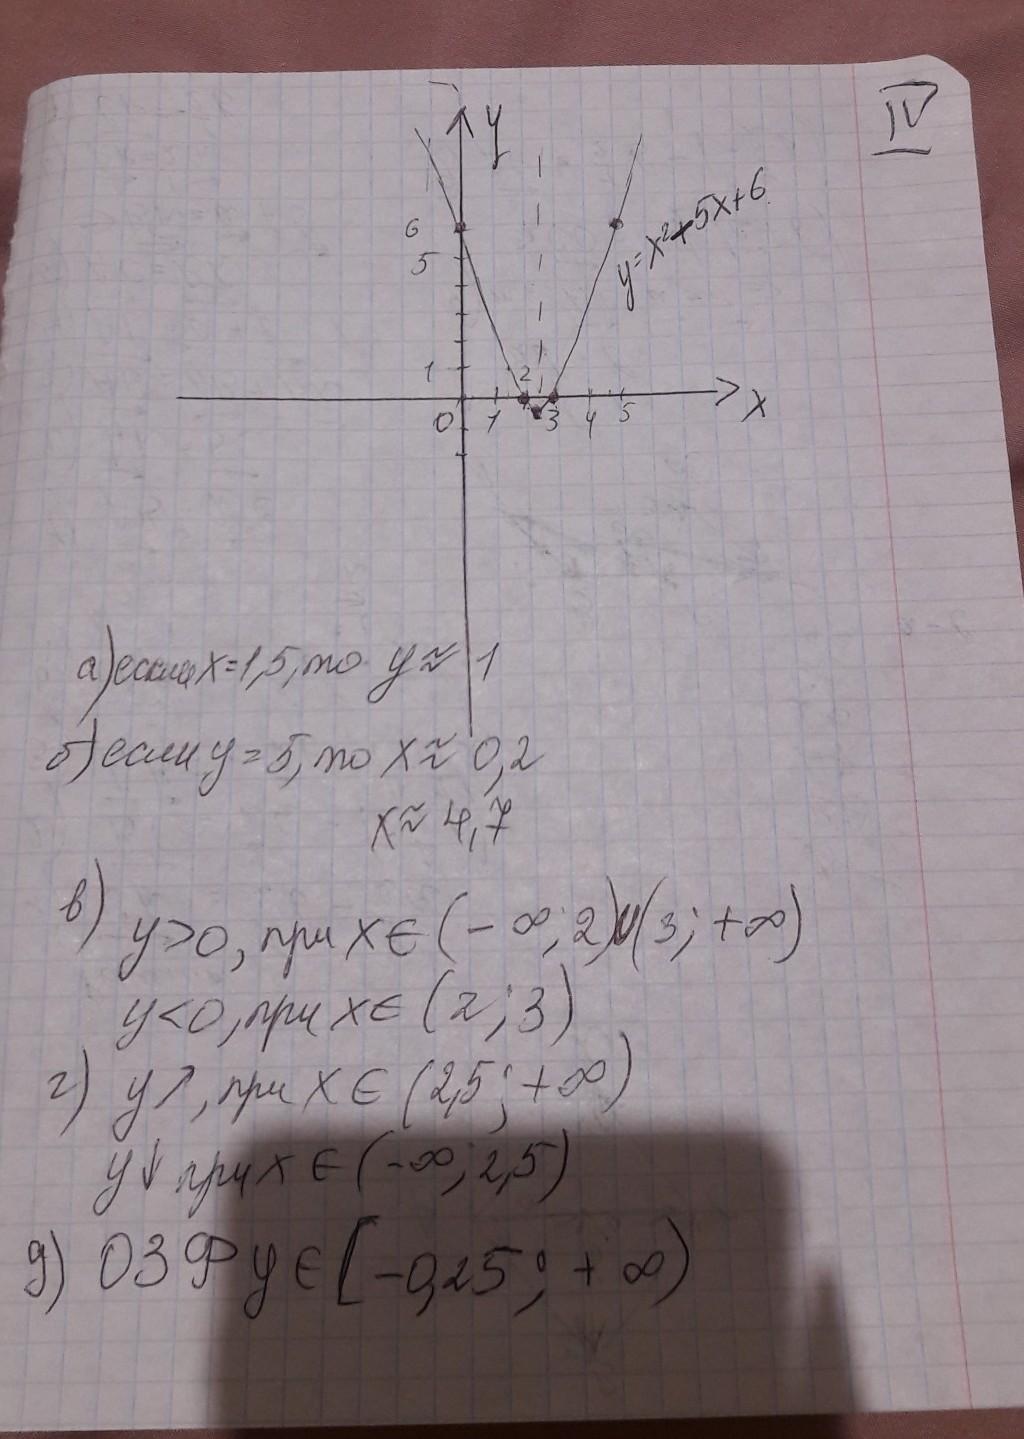 IV
y
6
5
y=x²+5x+6
1
2
0 1 3 4 5 x
а) если x=1,5, то y≈1
б) если y=5, то x≈0,2
x≈4,7
в)
y>0, при x∈(-∞;2)∪(3;+∞)
y<0, при x∈(2;3)
г) y↗, при x∈(2,5;+∞)
y↓ при x∈(-∞;2,5)
д) ОЗФ y∈[-0,25;+∞)